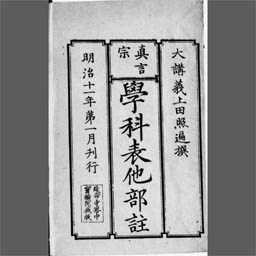 大講義上田照遍撰
真言
宗
學科表他部註
明治十一年第一月刊行